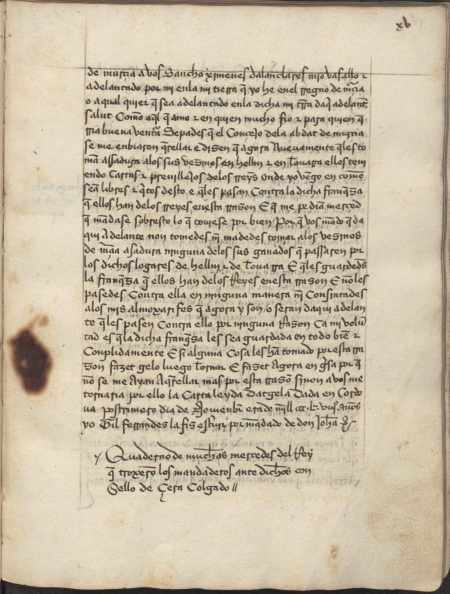 xv
de murçia a vos Sancho ximenes dalanclares mio vasallo &
adelantado por mi en la mi tierra que yo he en el Regno de murçia
o a qual quier que sea adelantado en la dicha mi tierra daqui adelante
salut Como aquel que amo & en quien mucho fio & para quien querria
buena ventura Sepades que el Conçejo de la çibdat de murçia
se me enbiaron querellar E disen que agora Nueva mente que les toman
assadura a los sus vesinos en hellin & en touarra ellos teniendo
Cartas & previllejos de los Reys onde yo vengo en como
sean libres & quitos desto e que les pasan Contra la dicha franqueza
que ellos han de los Reyes en esta Rason E que me pedian merçed
que mandase sobresto lo que touiese por bien Por que vos mando que da
qui adelante non tomedes nin mandedes tomar a los vesinos
de murçia assadura ninguna de los sus ganados que passaren por
los dichos logares de hellin & de touarra E que les guardedes
la franqueza que ellos han de los Reyes en esta Rason E non les
pasedes Contra ella en ninguna manera nin Consintades
a los mis almoxarifes que agora y son o seran daqui adelante
que les pasen Contra ello por ninguna Rason Ca mi voluntad
es que la dicha franqueza les sea guardada en todo bien &
Conplida mente E si alguna Cosa les han tomado por esta Rason
fazet gelo luego tornar E fazet Agora en guisa por que
non se me ayan A querellar mas por esta Rason sinon a vos me
tornaria por ello la Carta leyda Datgela Dada en Cordova
postrimero dia de Nouienbre era de mill
yo Gil ferrandes la fis escriuir por mandado de don Johan
Quaderno de muchas merçedes del Rey
que troxero los mandaderos ante dichos con
Sello de Çera Colgado //